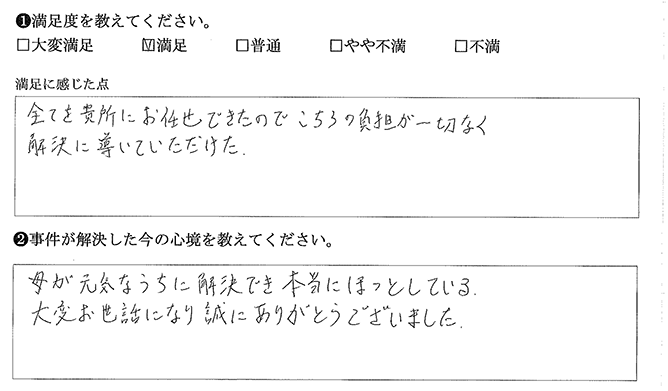 ❶満足度を教えてください。
□大変満足 ☑満足 □普通 □やや不満 □不満
満足に感じた点
全てを貴所にお任せできたのでこちらの負担が一切なく
解決に導いていただけた.
❷事件が解決した今の心境を教えてください。
母が元気なうちに解決でき本当にほっとしている.
大変お世話になり誠にありがとうございました.